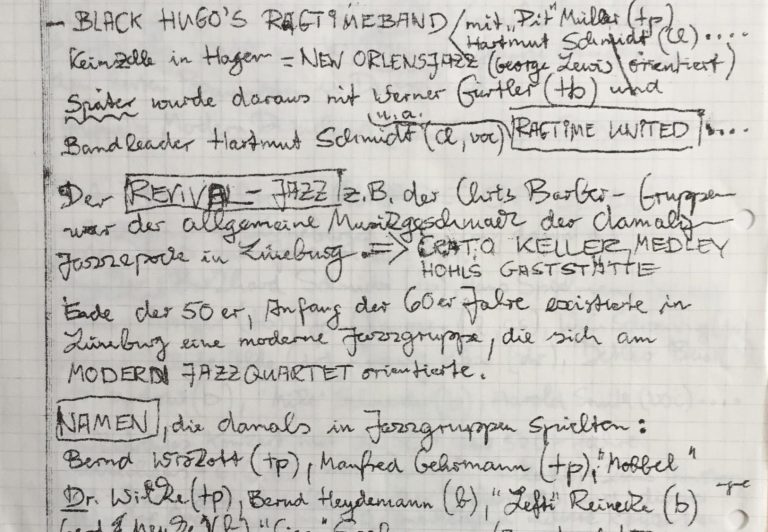 - BLACK HUGO'S RAGTIMEBAND / mit "Pit" Müller (tp)
Hartmut Schmidt (cl) ....
Keimzelle in Hagen = NEW ORLENSJAZZ (George Lewis orientiert)
Später wurde daraus mit Werner Gürtler (tb) und
u.a.
Bandleader Hartmut Schmidt (cl, voc) RAGTIME UNITED ....
Der REVIVAL-JAZZ z.B. der Chris Barber-Gruppen
war der allgemeine Musikgeschmack der damalig
Jazzepoche in Lüneburg. => CRATO KELLER MEDLEY
HOHLS GASTSTÄTTE
Ende der 50er, Anfang der 60er Jahre existierte in
Lüneburg eine moderne Jazzgruppe, die sich am
MODERN JAZZQUARTET orientierte.
NAMEN, die damals in Jazzgruppen spielten:
Bernd (tp), Manfred Gehrmann (tp), "Mobbel"
Dr. Wilke (tp), Bernd Heydemann (b), "Lefti" Reinecke (b)